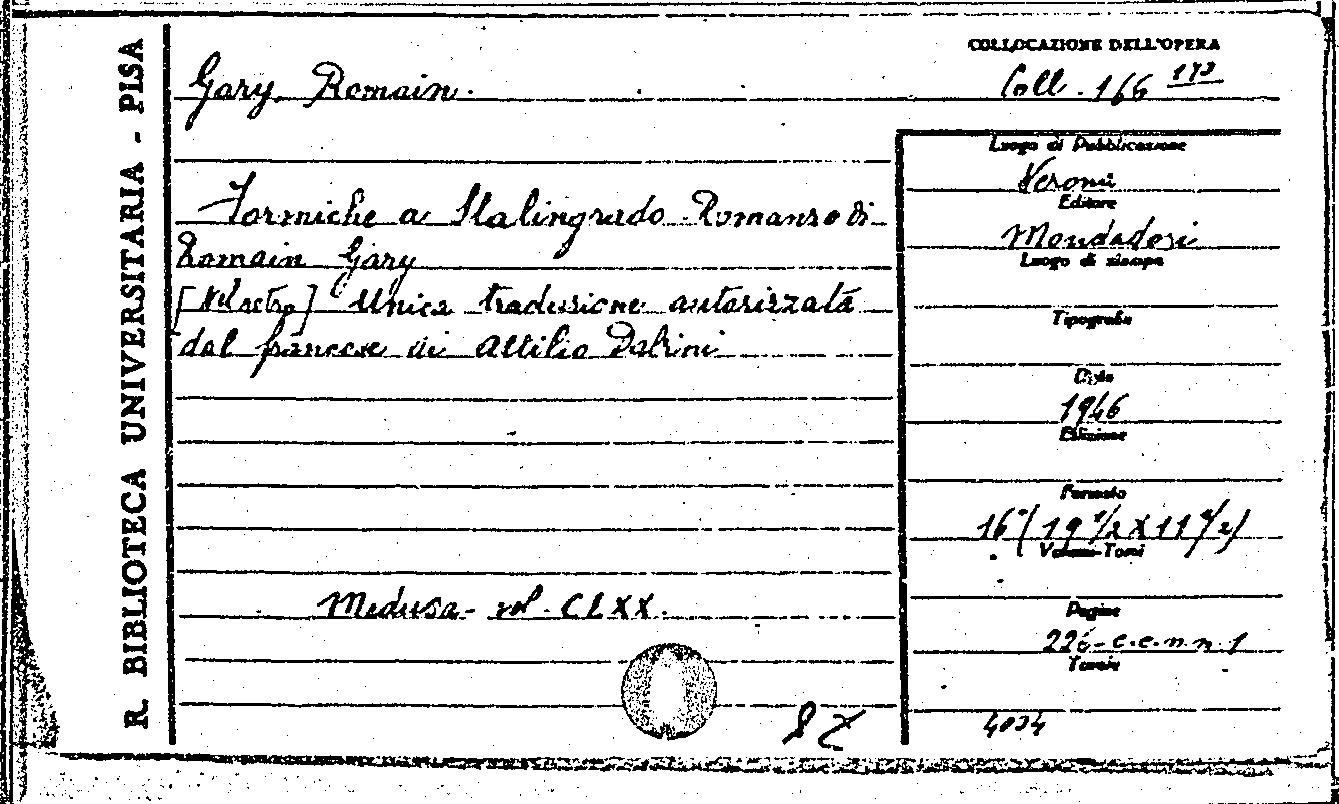 R. BIBLIOTECA UNIVERSITARIA - PISA
COLLOCAZIONE DELL'OPERA
Gary, Romain.
Coll. 166 173
Luogo di Pubblicazione
Verona
Editore
Formiche a Stalingrado. Romanzo di
Romain Gary
Mondadori
Luogo di stampa
[Nel retro] Unica traduzione autorizzata
Tipografia
dal francese di Attilio Dabini
Data
1946
Edizione
Formato
16° (19 1/2 X 11 1/2)
Volumi-Tomi
Medusa - vol. CLXX.
Pagine
226 - c.c.n.n. 1
Tavole
4034